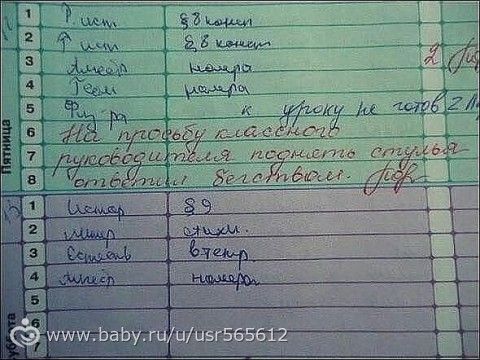 1 Р. ист §8 конст
2 Р ист §8 конст
3 Алгебр номера 2
4 Геом номера
5 Физ ра к уроку не готов 2
6 На просьбу классного
7 руководителя поднять стулья
8 ответил бегством.
Пятница
1 Истор §9
2 Литер стихи.
3 Естеств в тетр.
4 Алгебр номера
5
6
7
www.baby.ru/u/usr565612